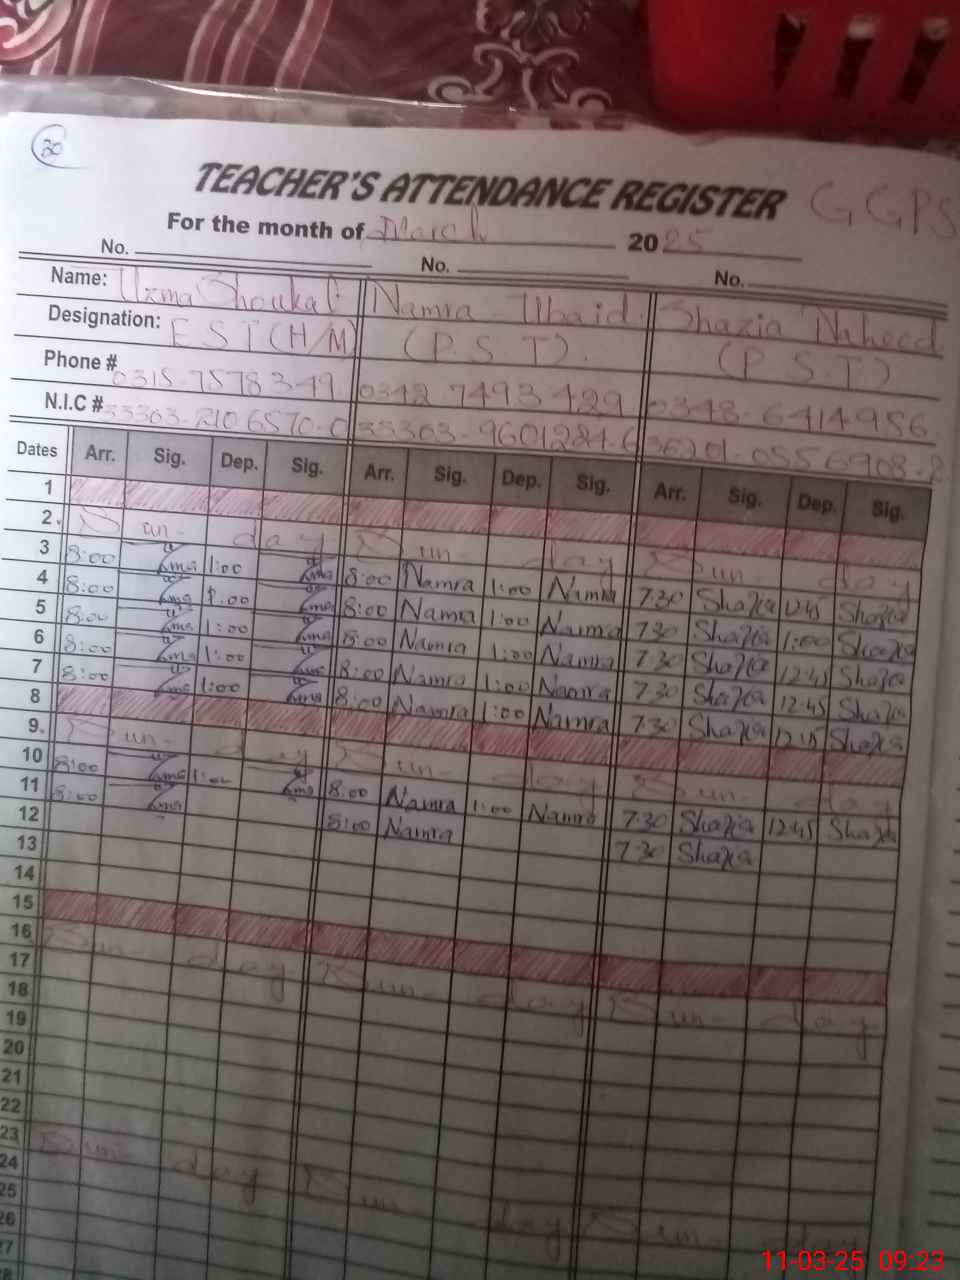 20
TEACHER'S ATTENDANCE REGISTER GGPS
For the month of March 2025
No. No. No.
Name: Uzma Shoukat Namra Ubaid. Shazia Naheed
Designation: EST (H/M) (P.S.T). (P.S.T)
Phone # 0315-7578349 0342 7493429 0348-6414956
N.I.C # 33303-2106570-0 33303-9601284-6 36201-0556908-2
Dates Arr. Sig. Dep. Sig. Arr. Sig. Dep. Sig. Arr. Sig. Dep. Sig.
1
2. Sun-day Sun-day Sun-day
3 8:00 Uzma 1:00 Uzma 8:00 Namra 1:00 Namra 7:30 Shazia 12:45 Shazia
4 8:00 Uzma 1:00 Uzma 8:00 Namra 1:00 Namra 7:30 Shazia 1:00 Shazia
5 8:00 Uzma 1:00 Uzma 8:00 Namra 1:00 Namra 7:30 Shazia 12:45 Shazia
6 8:00 Uzma 1:00 Uzma 8:00 Namra 1:00 Namra 7:30 Shazia 12:45 Shazia
7 8:00 Uzma 1:00 Uzma 8:00 Namra 1:00 Namra 7:30 Shazia 12:45 Shazia
8
9. Sun-day Sun-day Sun-day
10 8:00 Uzma 1:00 Uzma 8:00 Namra 1:00 Namra 7:30 Shazia 12:45 Shazia
11 8:00 Uzma 8:00 Namra 7:30 Shazia
12
13
14
15
16 Sun-day Sun-day Sun-day
17
18
19
20
21
22
23 Sun-day Sun-day Sun-day
24
25
26
27
11-03-25 09:23